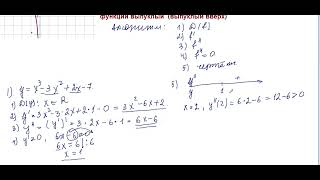 функции выпуклый (выпуклый вверх)
1) D(f)
2) f'
3) f''
4) f''=0
5) чертёж
1) y=x³-3x²+2x-7
1) D(y): x∈R
2) y'=3x²-3·2x+2·1-0=3x²-6x+2
3) y''=(y')'=3·2x-6·1=6x-6
4) y''=0, 6x-6=0
6x=6 |:6
x=1
5) y''
y 1
x=2, y''(2)=6·2-6=12-6>0